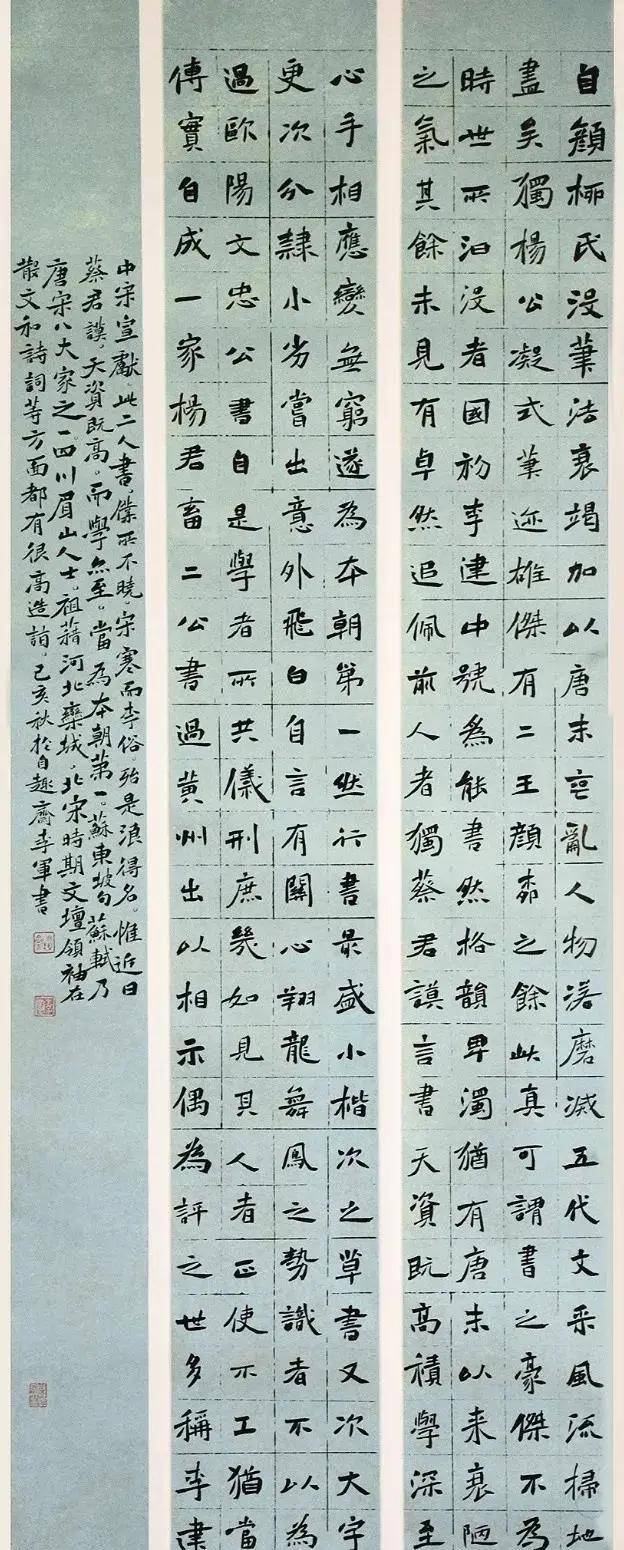 自顏栁氏没筆法衰竭加以唐末喪亂人物落磨滅五代文采風流掃地
盡矣獨楊公凝式筆迹雄傑有二王顏栁之餘此真可謂書之豪傑不為
時世所汩没者國初李建中號為能書然格韻卑濁猶有唐末以来衰陋
之氣其餘未見有卓然追佩前人者獨蔡君謨言書天資既高積學深至
心手相應變無窮遂為本朝第一然行書最盛小楷次之草書又次大字
更次分隸小劣嘗出意外飛白自言有關心翔龍舞鳳之勢識者不以為
過歐陽文忠公書自是學者所共儀刑庶幾如見其人者正使不工猶當
傳實自成一家楊君畜二公書過黄州出以相示偶為評之世多稱李建
中宋宣獻。此二人書,僕所不曉。宋寒而李俗。殆是浪得名。惟近日
蔡君謨,天資既高。而學亦至。當為本朝第一。蘇東坡句蘇軾乃
唐宋八大家之一。四川眉山人士。祖籍河北欒城。北宋時期文壇領袖在
散文和詩詞等方面都有很高造詣。己亥秋於自趣齋李軍書